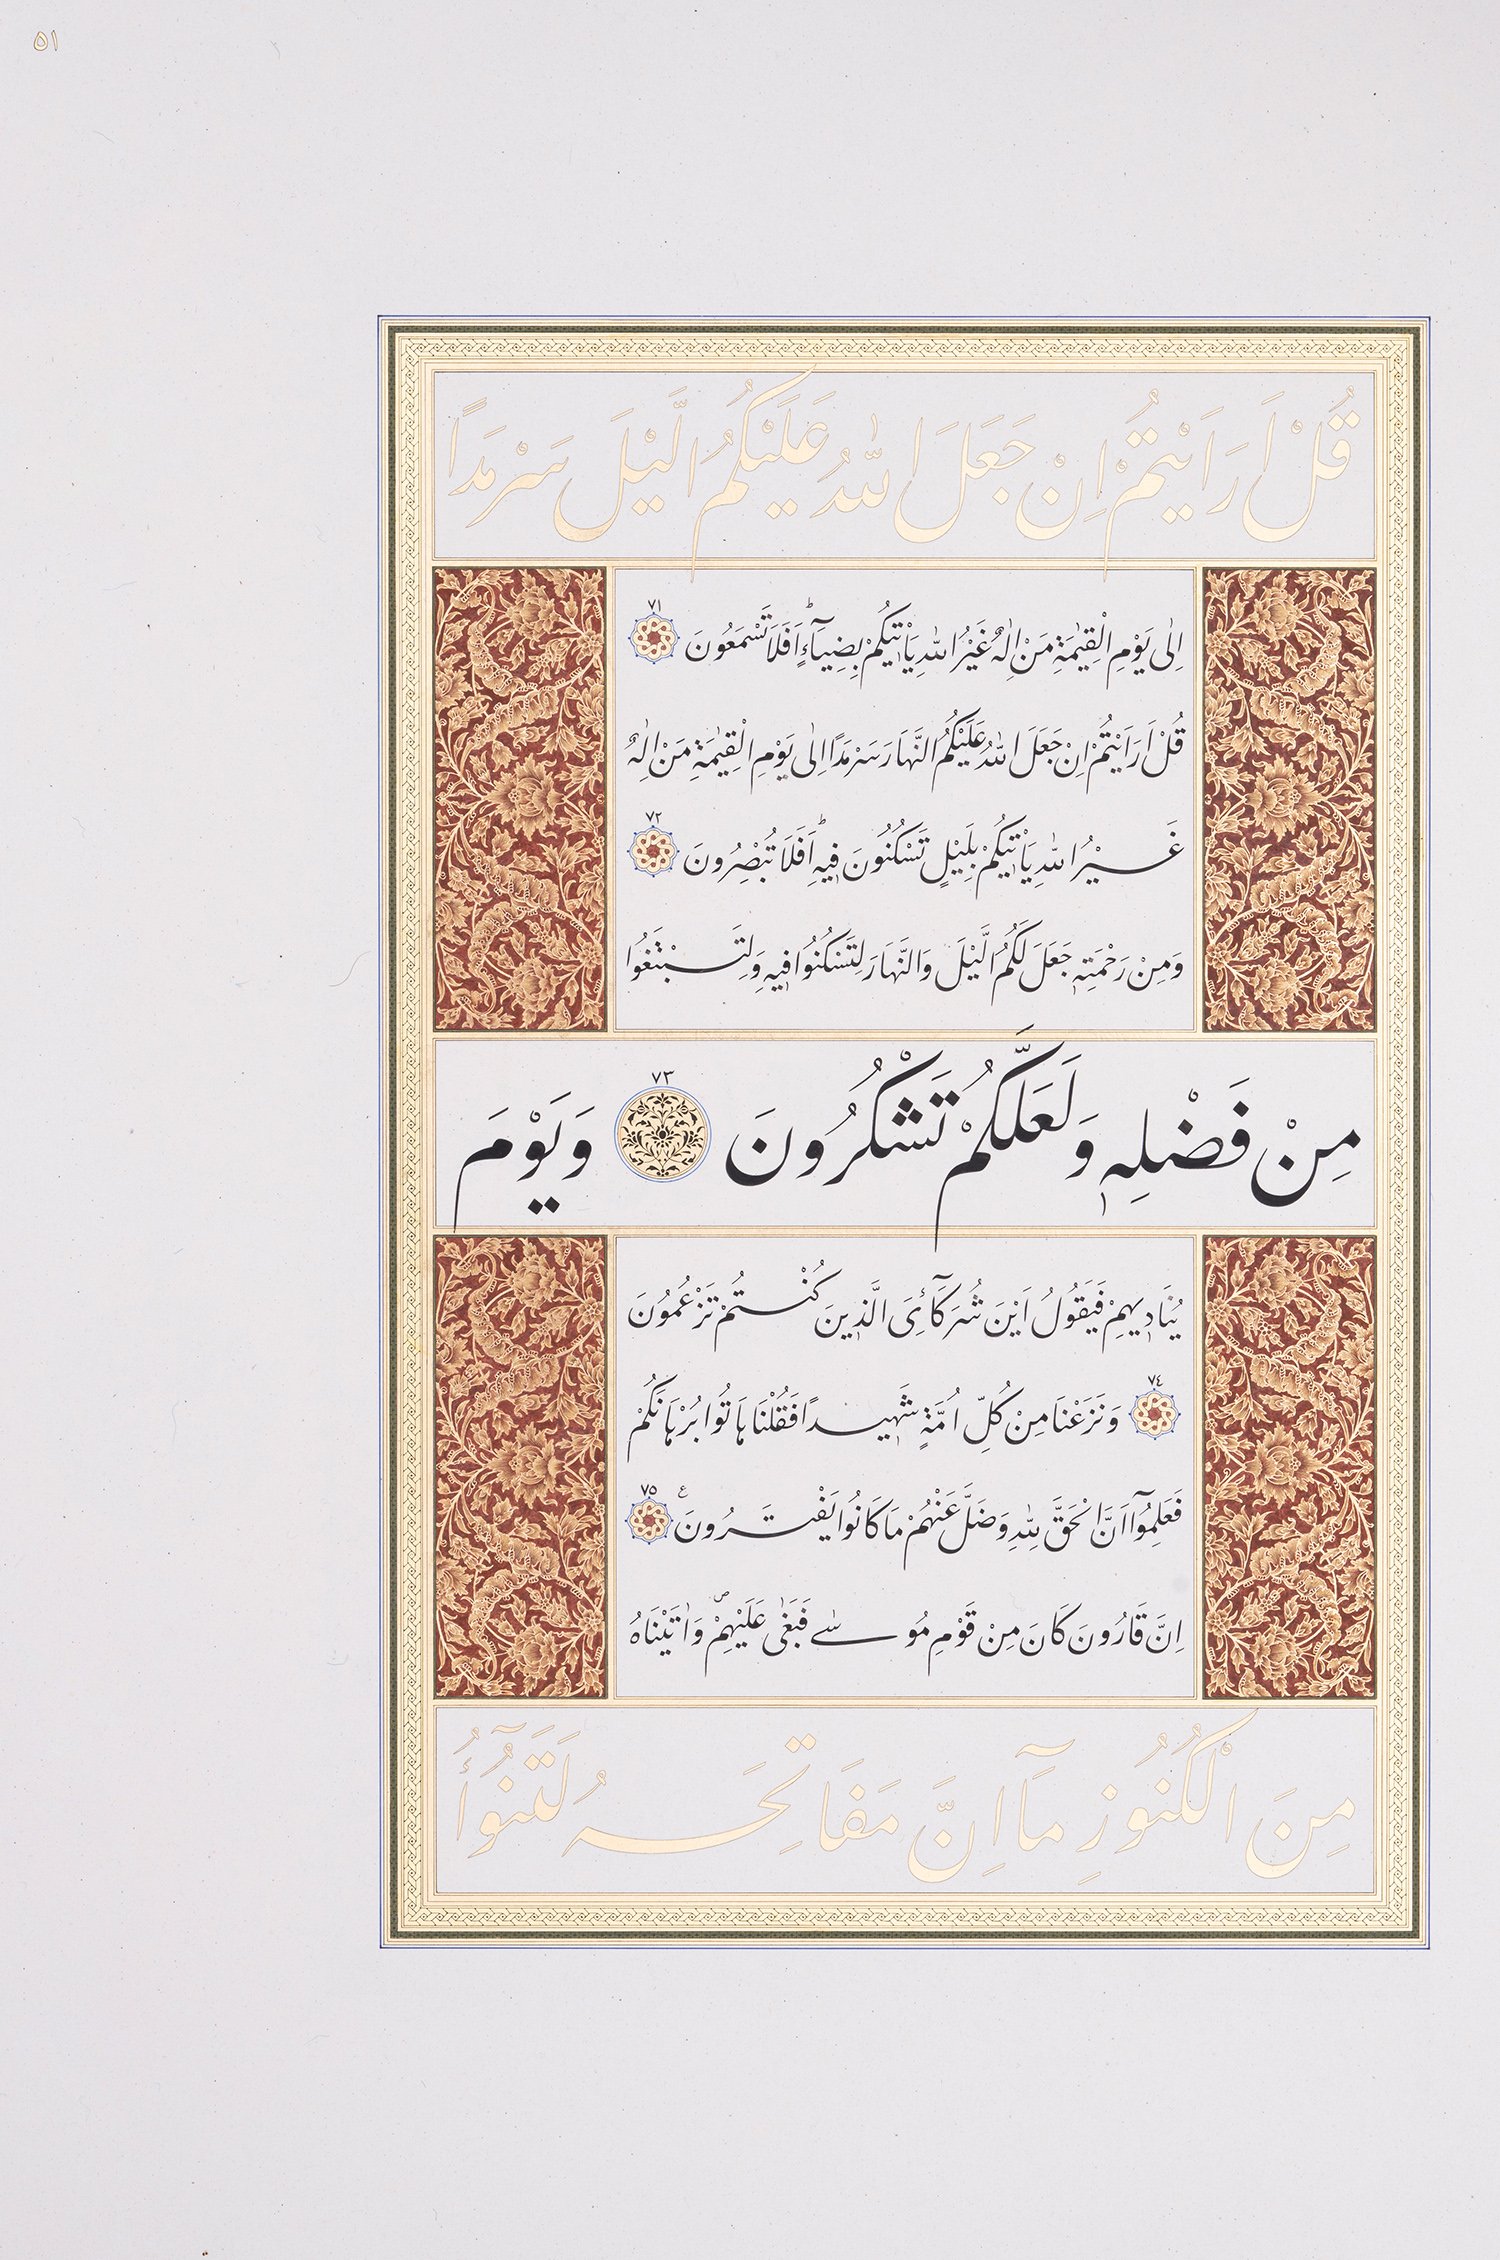 ٥١
قُلْ اَرَاَيْتُمْ اِنْ جَعَلَ اللّٰهُ عَلَيْكُمُ الَّيْلَ سَرْمَدًا
اِلٰى يَوْمِ الْقِيٰمَةِ مَنْ اِلٰهٌ غَيْرُ اللّٰهِ يَاْت۪يكُمْ بِضِيَٓاءٍۜ اَفَلَا تَسْمَعُونَ ٧١
قُلْ اَرَاَيْتُمْ اِنْ جَعَلَ اللّٰهُ عَلَيْكُمُ النَّهَارَ سَرْمَدًا اِلٰى يَوْمِ الْقِيٰمَةِ مَنْ اِلٰهٌ
غَيْرُ اللّٰهِ يَاْت۪يكُمْ بِلَيْلٍ تَسْكُنُونَ ف۪يهِۜ اَفَلَا تُبْصِرُونَ ٧٢
وَمِنْ رَحْمَتِه۪ جَعَلَ لَكُمُ الَّيْلَ وَالنَّهَارَ لِتَسْكُنُوا ف۪يهِ وَلِتَبْتَغُوا
مِنْ فَضْلِه۪ وَلَعَلَّكُمْ تَشْكُرُونَ ٧٣ وَيَوْمَ
يُنَاد۪يهِمْ فَيَقُولُ اَيْنَ شُرَكَٓاءِيَ الَّذ۪ينَ كُنْتُمْ تَزْعُمُونَ
٧٤ وَنَزَعْنَا مِنْ كُلِّ اُمَّةٍ شَه۪يدًا فَقُلْنَا هَاتُوا بُرْهَانَكُمْ
فَعَلِمُٓوا اَنَّ الْحَقَّ لِلّٰهِ وَضَلَّ عَنْهُمْ مَا كَانُوا يَفْتَرُونَ ع ٧٥
اِنَّ قَارُونَ كَانَ مِنْ قَوْمِ مُوسٰى فَبَغٰى عَلَيْهِمْۖ وَاٰتَيْنَاهُ
مِنَ الْكُنُوزِ مَٓا اِنَّ مَفَاتِحَهُ لَتَنُٓوأُ